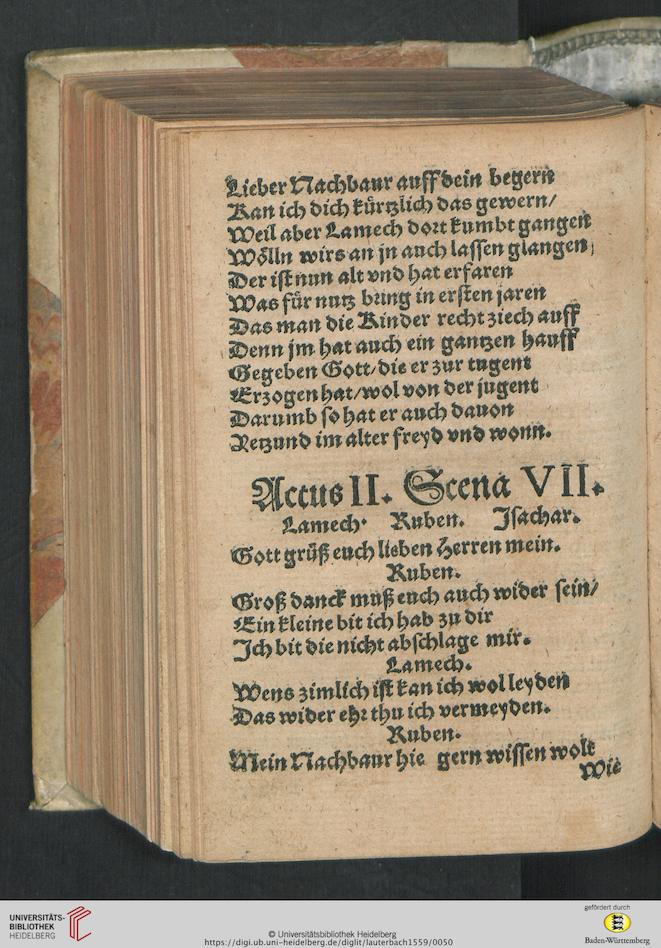 Lieber Nachbaur auff dein begern
Kan ich dich kürtzlich das gewern/
Weil aber Lamech dort kumbt gangen
Wölln wirs an jn auch lassen glangen/
Der ist nun alt vnd hat erfaren
Was für nutz bring in ersten jaren
Das man die Kinder recht ziech auff
Denn jm hat auch ein gantzen hauff
Gegeben Gott/die er zur tugent
Erzogen hat/wol von der jugent
Darumb so hat er auch dauon
Jetzund im alter freyd vnd wonn.
Actus II. Scena VII.
Lamech. Ruben. Jsachar.
Gott grüß euch lieben Herren mein.
Ruben.
Groß danck muß euch auch wider sein/
Ein kleine bit ich hab zu dir
Jch bit die nicht abschlage mir.
Lamech.
Wens zimlich ist kan ich wol leyden
Das wider ehr thu ich vermeyden.
Ruben.
Mein Nachbaur hie gern wissen wolt
Wie
UNIVERSITÄTS-
BIBLIOTHEK
HEIDELBERG
© Universitätsbibliothek Heidelberg
https://digi.ub.uni-heidelberg.de/diglit/lauterbach1559/0050
gefördert durch
Baden-Württemberg